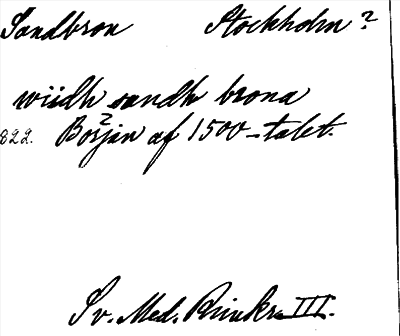 Sandbron Stockholm?
wiidh sandh brona
822. Början af 1500-talet.
2
Sv. Med. Rimkr. III.